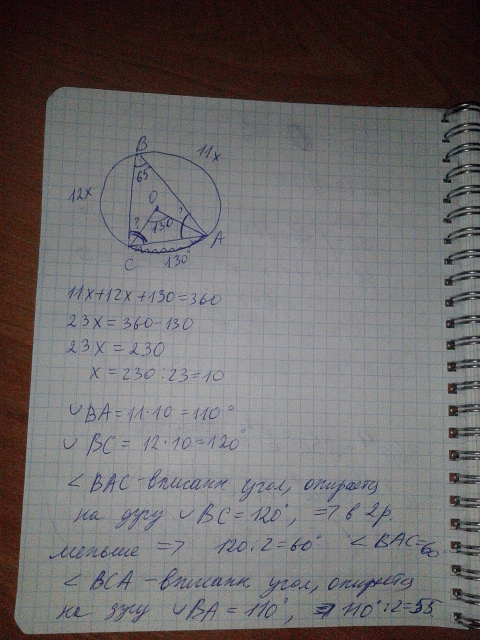 B
11x
65
12x
O
130
?
?
A
C
130°
11x+12x+130=360
23x=360-130
23x=230
x=230:23=10
∪BA=11·10=110°
∪BC=12·10=120°
∠BAC-вписанн угол, опирается
на дугу ∪BC=120°, => в 2р.
меньше => 120:2=60° ∠BAC=60
∠BCA-вписанн угол, опирается
на дугу ∪BA=110°, => 110°:2=55